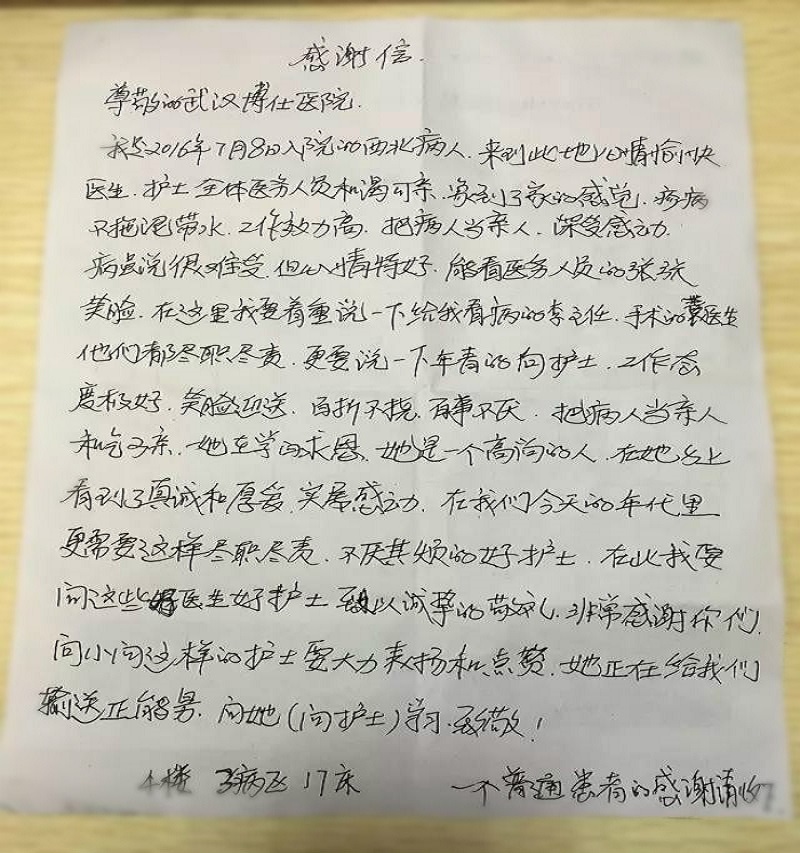 感谢信.
尊敬的武汉博仕医院.
我是2016年7月8日入院的西北病人.来到此地心情愉快
医生.护士全体医务人员和渴可亲.象到了家的感觉.疹病
不拖泥带水.工作效力高.把病人当亲人.深受感动.
病虽说很难受.但心情特好.能看医务人员的张张
笑脸.在这里我要着重说一下给我看病的李主任.手术的医生
他们都尽职尽责.更要说一下年青的向护士.工作态
度极好.笑脸迎送.百折不挠.百事不厌.把病人当亲人
和可亲.她在学白求恩.她是一个高尚的人.在她身上
看到了真诚和厚爱.实属感动.在我们今天的年代里
更需要这样尽职尽责.不厌其烦的好护士.在此我要
向这些好医生好护士致以诚挚的敬礼.非常感谢你们.
向小向这样的护士要大力表扬和点赞.她正在给我们
输送正能量.向她(向护士)学习.致敬!
4楼 3病区 17床 一个普通患者的感谢请收